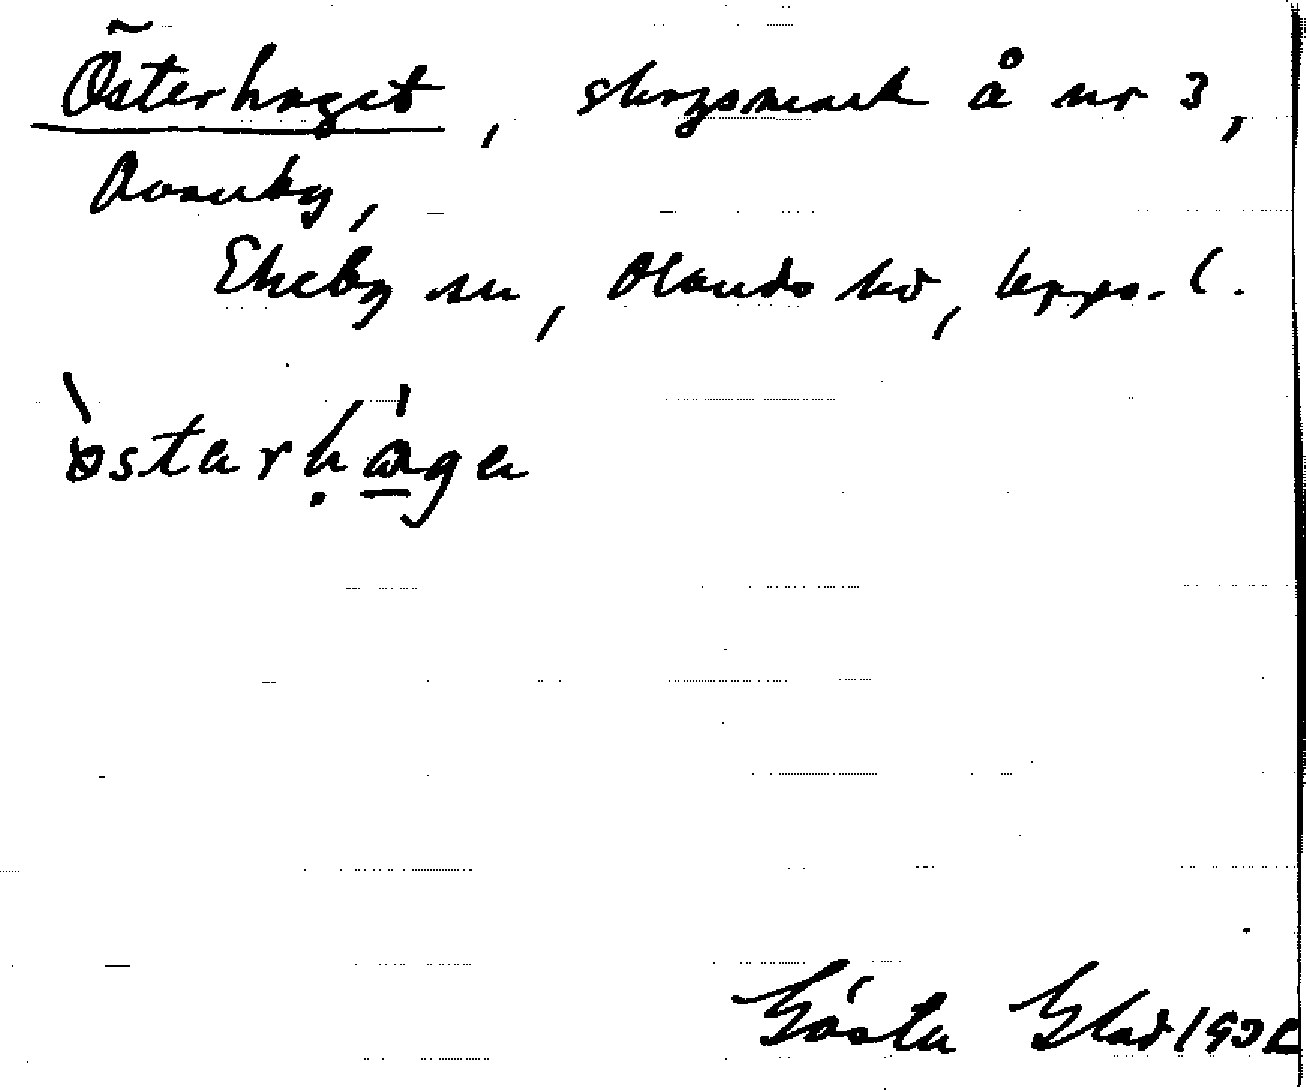 Österhaget, skogsmark å nr 3,
Rovsby,
Ekeby sn, Olands hd, Upps. l.
östarhaga
Gösta Glad 193